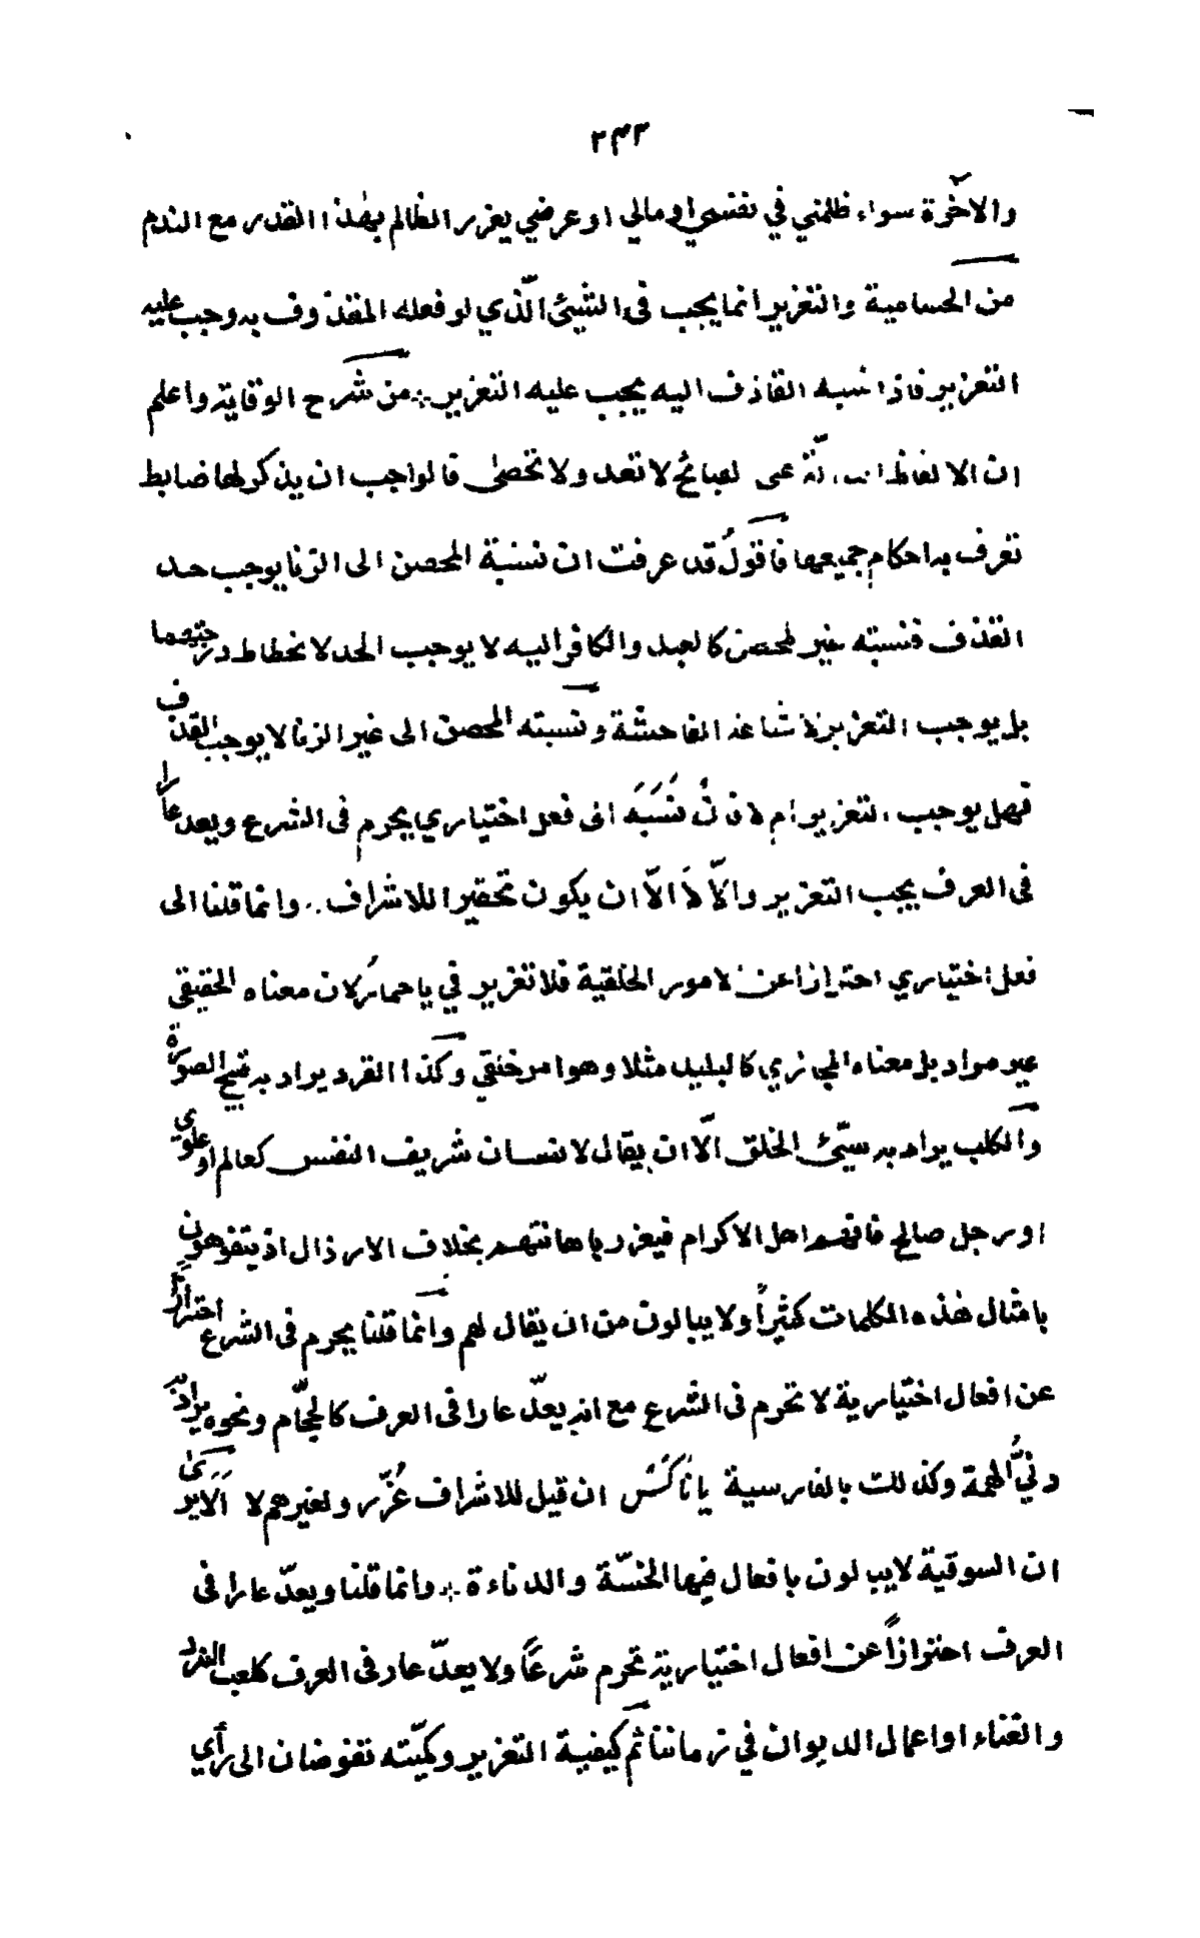 ٢٤٣
والآخرة سواء ظلمني في نفسي او مالي او عرضي يعزر الظالم بهذا القدر مع الندم
من الحسامية والتعزير انما يجب في الشيئ الّذي لو فعله المقذوف به وجب عليه
التعزير فاذا نسبه القاذف اليه يجب عليه التعزير ؞ من شرح الوقاية واعلم
ان الالفاظ الدالّة على القبائح لا تعد ولا تحصٰى فالواجب ان يذكر لها ضابط
تعرف به احكام جميعها فاقولُ قد عرفت ان نسبة المحصن الى الزنا يوجب حد
القذف فنسبته غير المحصن كالعبد والكافر اليه لا يوجب الحد لانحطاط درجتهما
بل يوجب التعزير لاشاعة الفاحشة ونسبته المحصن الى غير الزنا لا يوجب القذف
فهل يوجب التعزير ام لا فان نَسَبَه الى فعل اختياري يحرم فى الشرع ويعد عارا
فى العرف يجب التعزير والّا لَا الّا ان يكون تحقيرا للاشراف ؞ وانما قلنا الى
فعل اختياري احترازا عن الامور الخلقية فلا تعزير في يا حمارُ لان معناه الحقيقي
غير مراد بل معناه المجازي كالبليد مثلا وهو امر خلقي وكذا القرد يراد به قبيح الصورة
والكلب يراد به سيّئ الخلق الّا ان يقال لانسان شريف النفس كعالم او علوي
او رجل صالح فانهم اهل الاكرام فيعزر باهانتهم بخلاف الارذال اذ يتفوهون
بامثال هذه الكلمات كثيراً ولا يبالون من ان يقال لهم وانما قلنا يحرم فى الشرع احترازًا
عن افعال اختيارية لا تحرم فى الشرع مع انه يعدّ عارا فى العرف كالحجّام ونحوه يراد به
دنيُّ الهمة وكذلك بالفارسية يا ناكَسْ ان قيل للاشراف عُزّر ولغيرهم لا اَلَا يرَىٰ
ان السوقية لا يبالون بافعال فيها الخسّة والدناءة ؞ وانما قلنا ويعدّ عارا فى
العرف احترازاً عن افعال اختيارية تحرم شرعًا ولا يعدّ عار فى العرف كلعب النرد
والغناء او اعمال الديوان في زماننا ثم كيفية التعزير وكمّيته تفوضان الى رأي